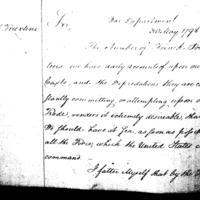 Sir,
War Department
30 May 1798
The Number of French
we have daily accounts of upon our
Coasts, and the Depredations they are con-
stantly committing, or attempting upon our
Trade, renders it extremely desireable, that
We should have at Sea, as soon as possi
all the Force, which the United States
command.
I flatter Myself that by the